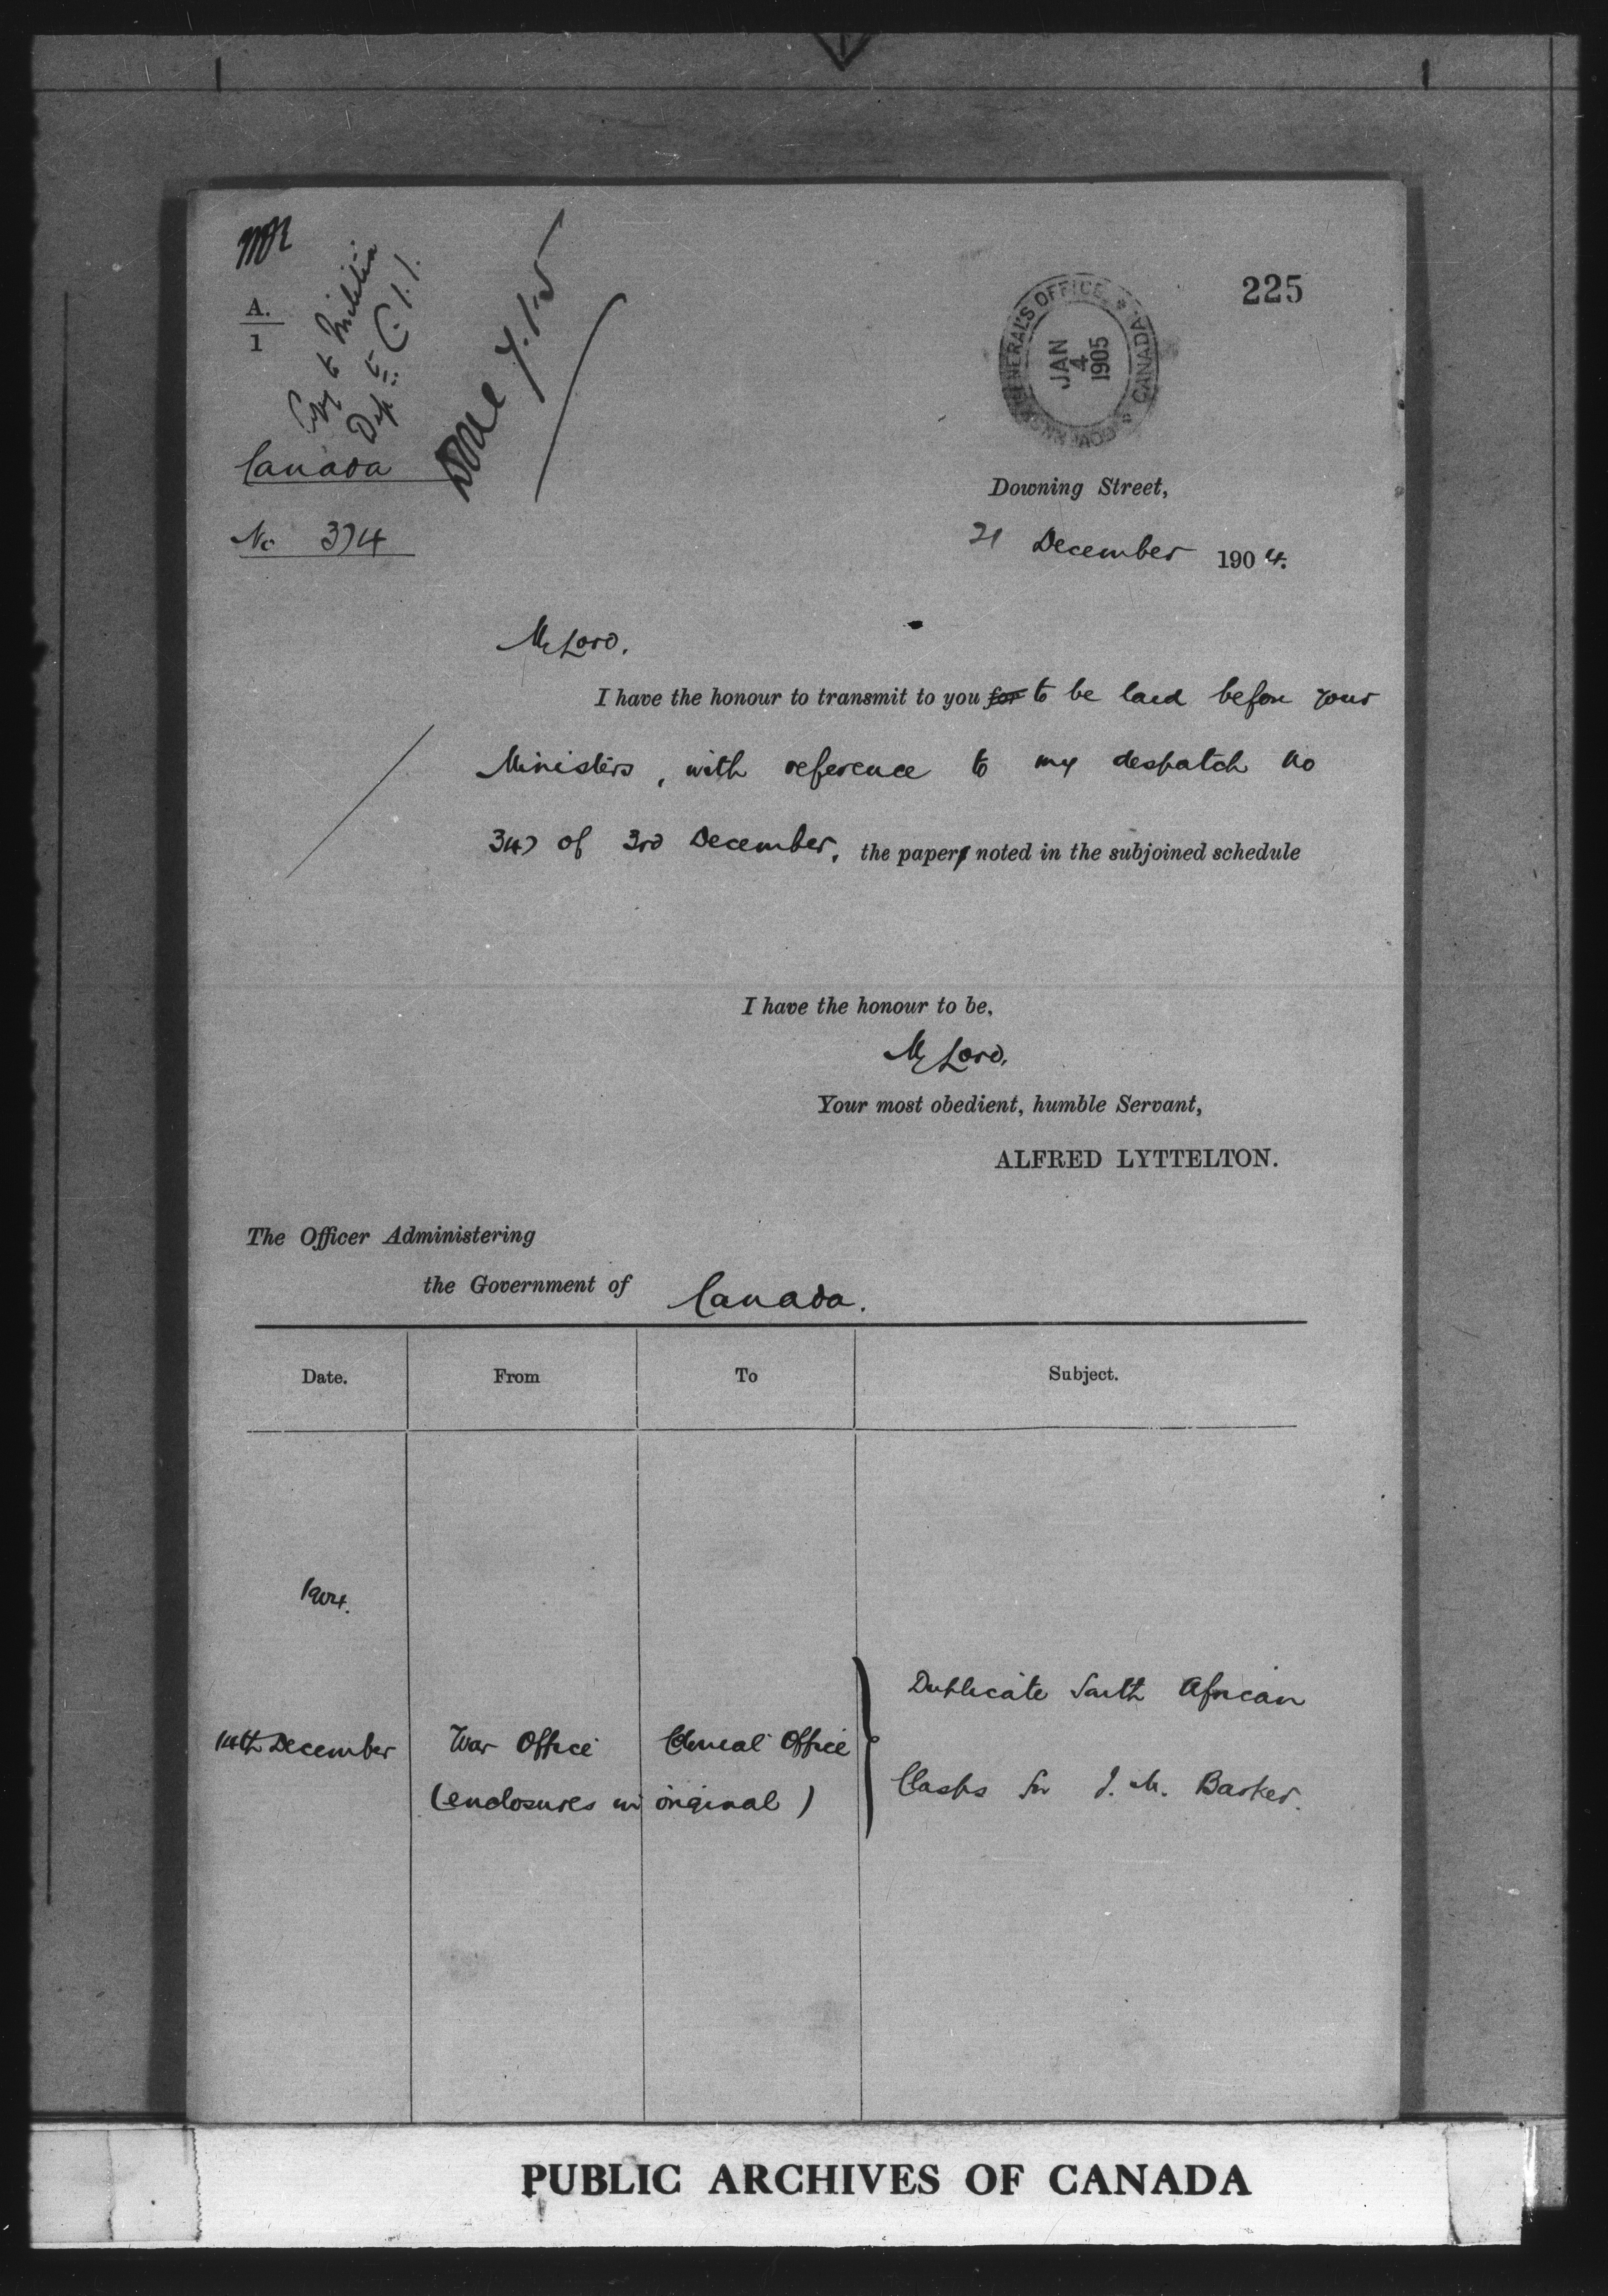 225
A.
1
Copy to Militia
Dept
Done 4.1.5
GOVERNOR GENERAL'S OFFICE * CANADA *
JAN
4
1905
Canada
No 374
Downing Street,
21 December 1904.
My Lord,
I have the honour to transmit to you for to be laid before your
Ministers, with reference to my despatch No
347 of 3rd December, the papers noted in the subjoined schedule
I have the honour to be,
My Lord,
Your most obedient, humble Servant,
ALFRED LYTTELTON.
The Officer Administering
the Government of Canada.
Date. From To Subject.
1904.
Duplicate South African
14th December War Office Colonial Office
Clasps for J. M. Barker.
(enclosures in original)
PUBLIC ARCHIVES OF CANADA